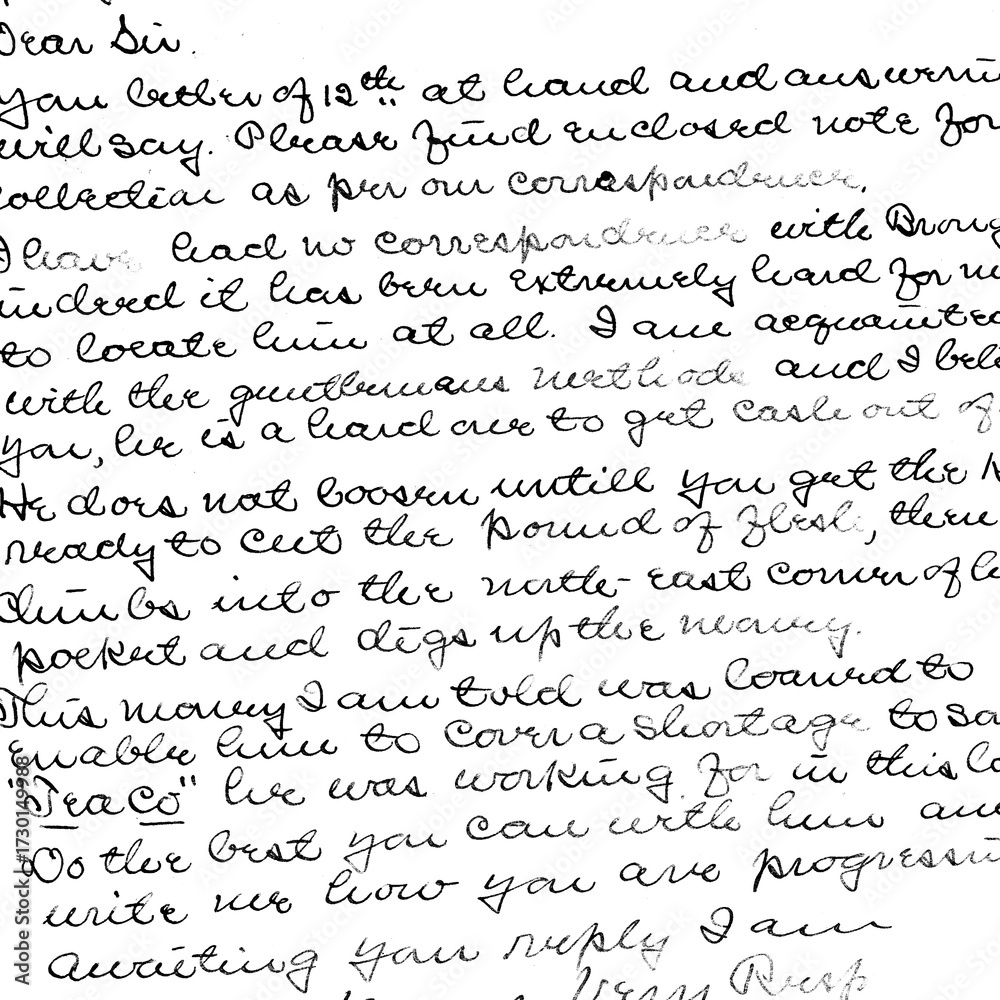 Dear Sir.
You letter of 12th at hand and answerin
will say. Please find enclosed note for
collection as per our correspondence.
I have had no correspondence with Broug
indeed it has been extremely hard for m
to locate him at all. I am acquainted
with the gentlemans methods and I beli
you, he is a hard one to get cash out of
He does not loosen untill you get the k
ready to cut the pound of flesh, then
climbs into the north-east corner of h
pocket and digs up the money.
This money I am told was loaned to
enable him to cover a shortage to so
"Tea Co" he was working for in this lo
Do the best you can with him an
write me how you are progressin
awaiting you reply I am
Very Resp
Adobe Stock | #1730149988